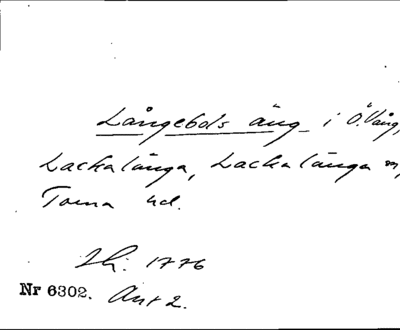 Långebols äng i Ö. Vång,
Lackalänga, Lackalänga sn,
Torna hd.
1776
Nr 6302. Akt 2.